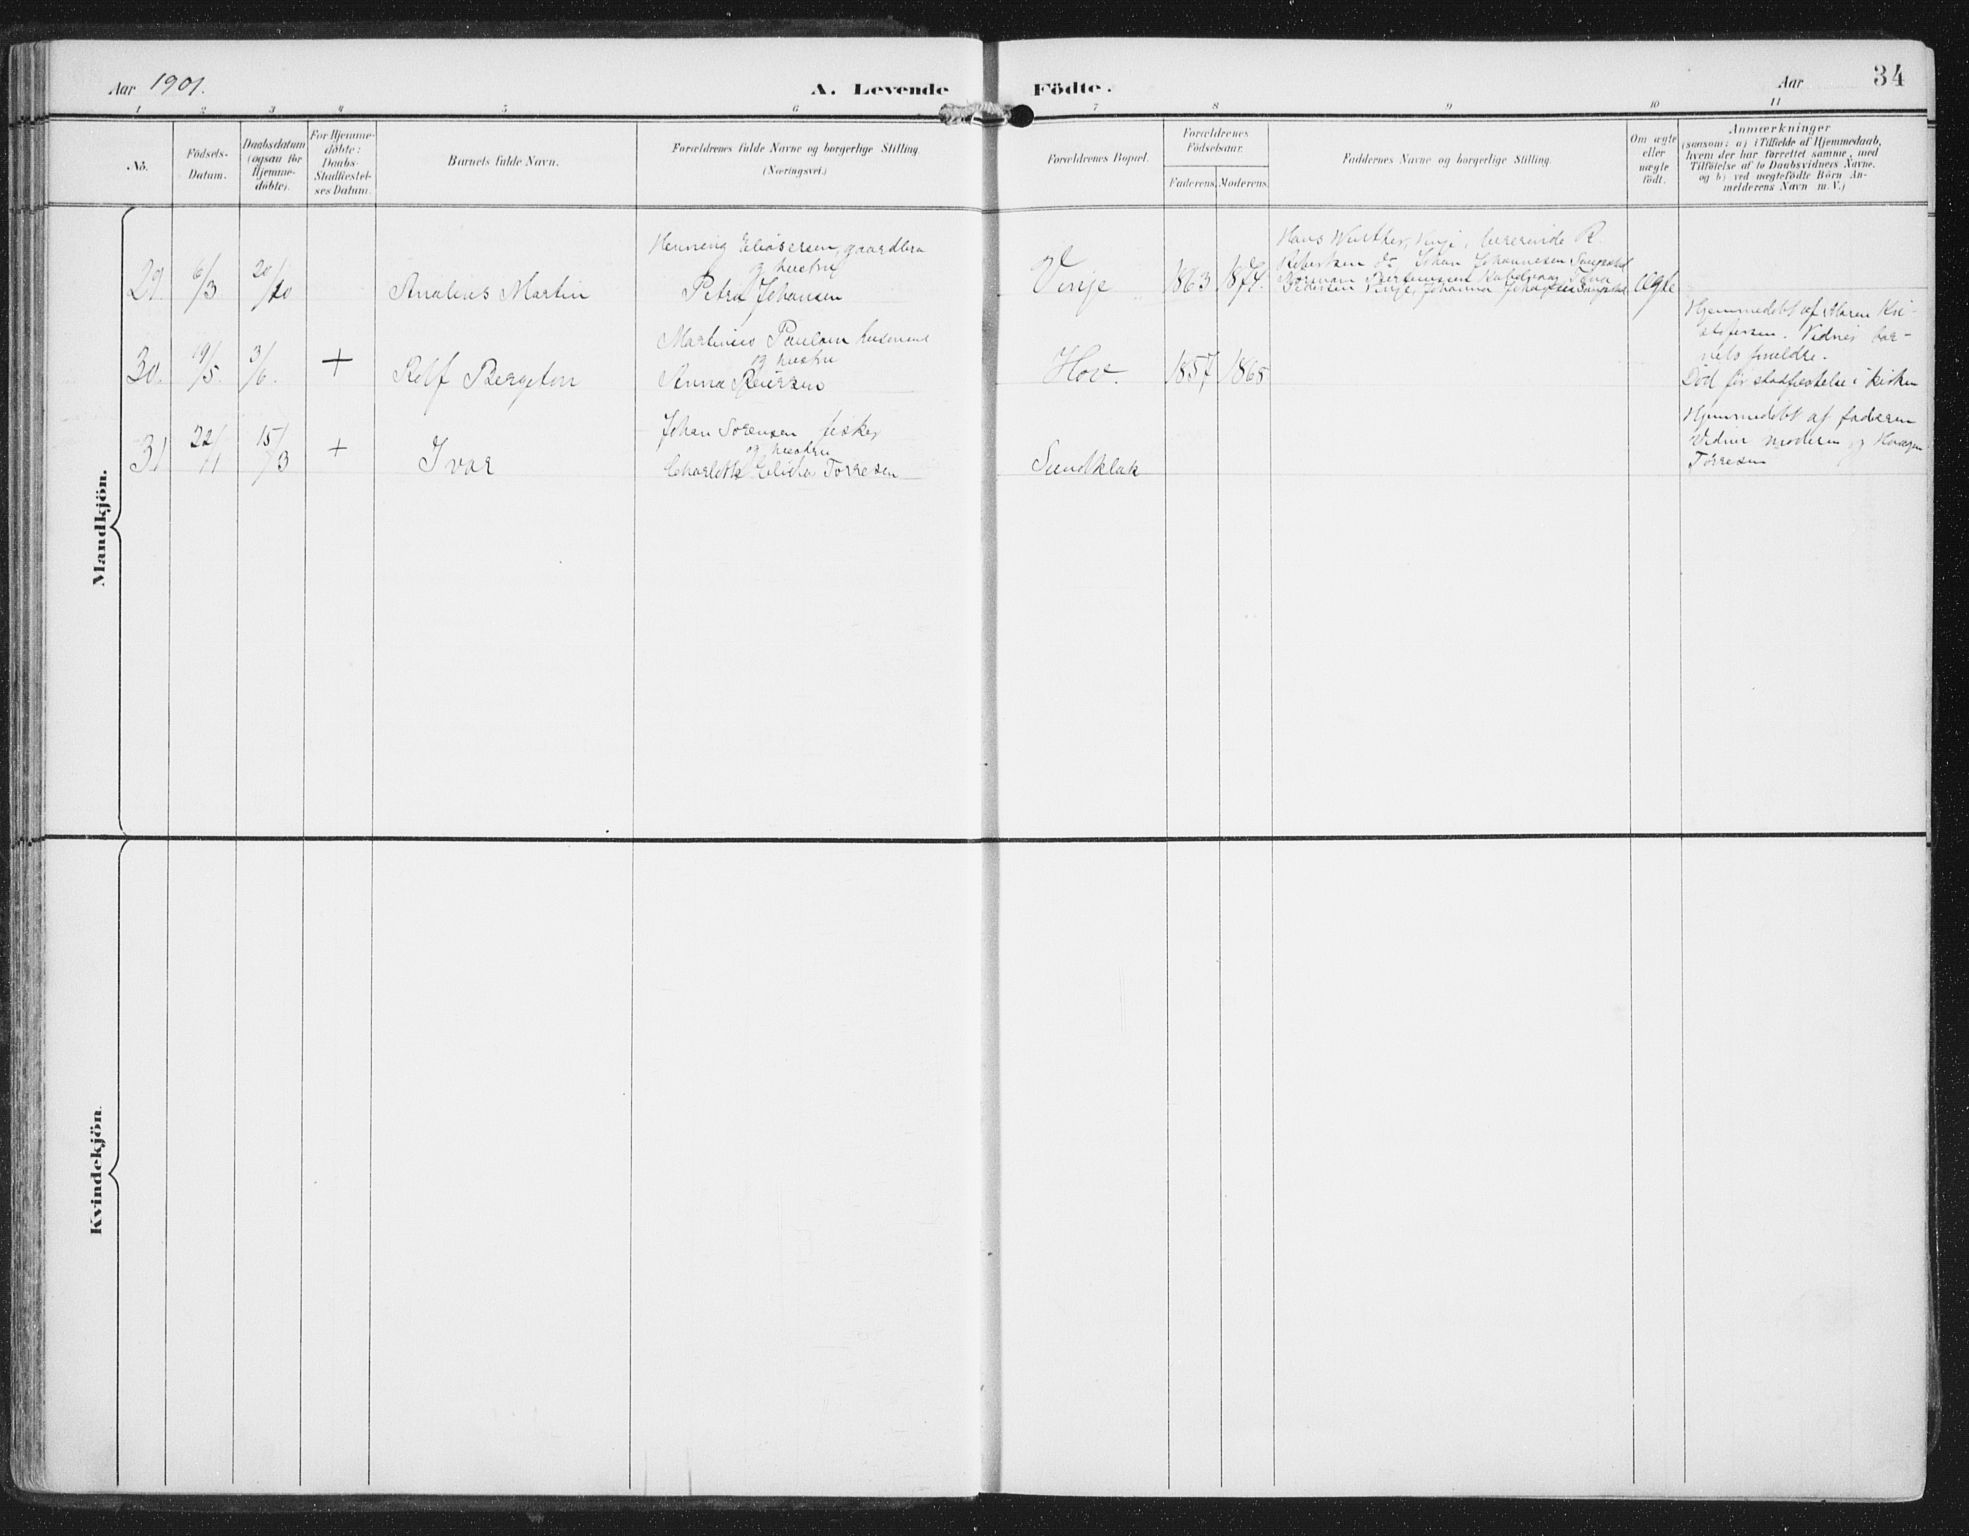 Aar 1901.
A. Levende Födte.
Aar 34
1 2 3 4 5 6 7 8 9 10 11
No.
Födsels-
Datum.
Daabsdatum
(ogsaa for
Hjemme-
döbte).
For Hjemme-
döbte:
Daabs-
Stadfæstel-
ses Datum.
Barnets fulde Navn.
Forældrenes fulde Navne og borgerlige Stilling.
(Næringsvei.)
Forældrenes Bopæl.
Forældrenes
Födselsaar.
Faderens. Moderens.
Faddernes Navne og borgerlige Stilling.
Om ægte
eller
uægte
født.
Anmærkninger
(saasom: a) i Tilfælde af Hjemmedaab,
hvem der har forrettet samme, med
Tilföielse af to Daabsvidners Navne.
og b) ved uægtefödte Börn An-
melderens Navn m. V.)
Mandkjön.
29 6/3 20/10
Martin
Henning gaardbr
og hustru
Petra Johansen
Vinje 1863 1874.
Hans Vinje,
Johan Johannesen
Pedersen Vinje, Johanna
Ægte
30. 19/5. 3/6. +
Rolf Bergeton
Martinus Paulsen husmand
og hustru
Anna
Hov. 1857 1865
Hjemmedøbt af Maren Kri-
stofersen. Vidner bar-
nets forældre.
Død før stadfæstelse i kirken
31 22/1 15/3 +
Ivar
Johan Sørensen fisker
og hustru
Charlotte Torresen
Sundklak
Hjemmedøbt af faderen
Vidner moderen og
Torresen
Kvindekjön.